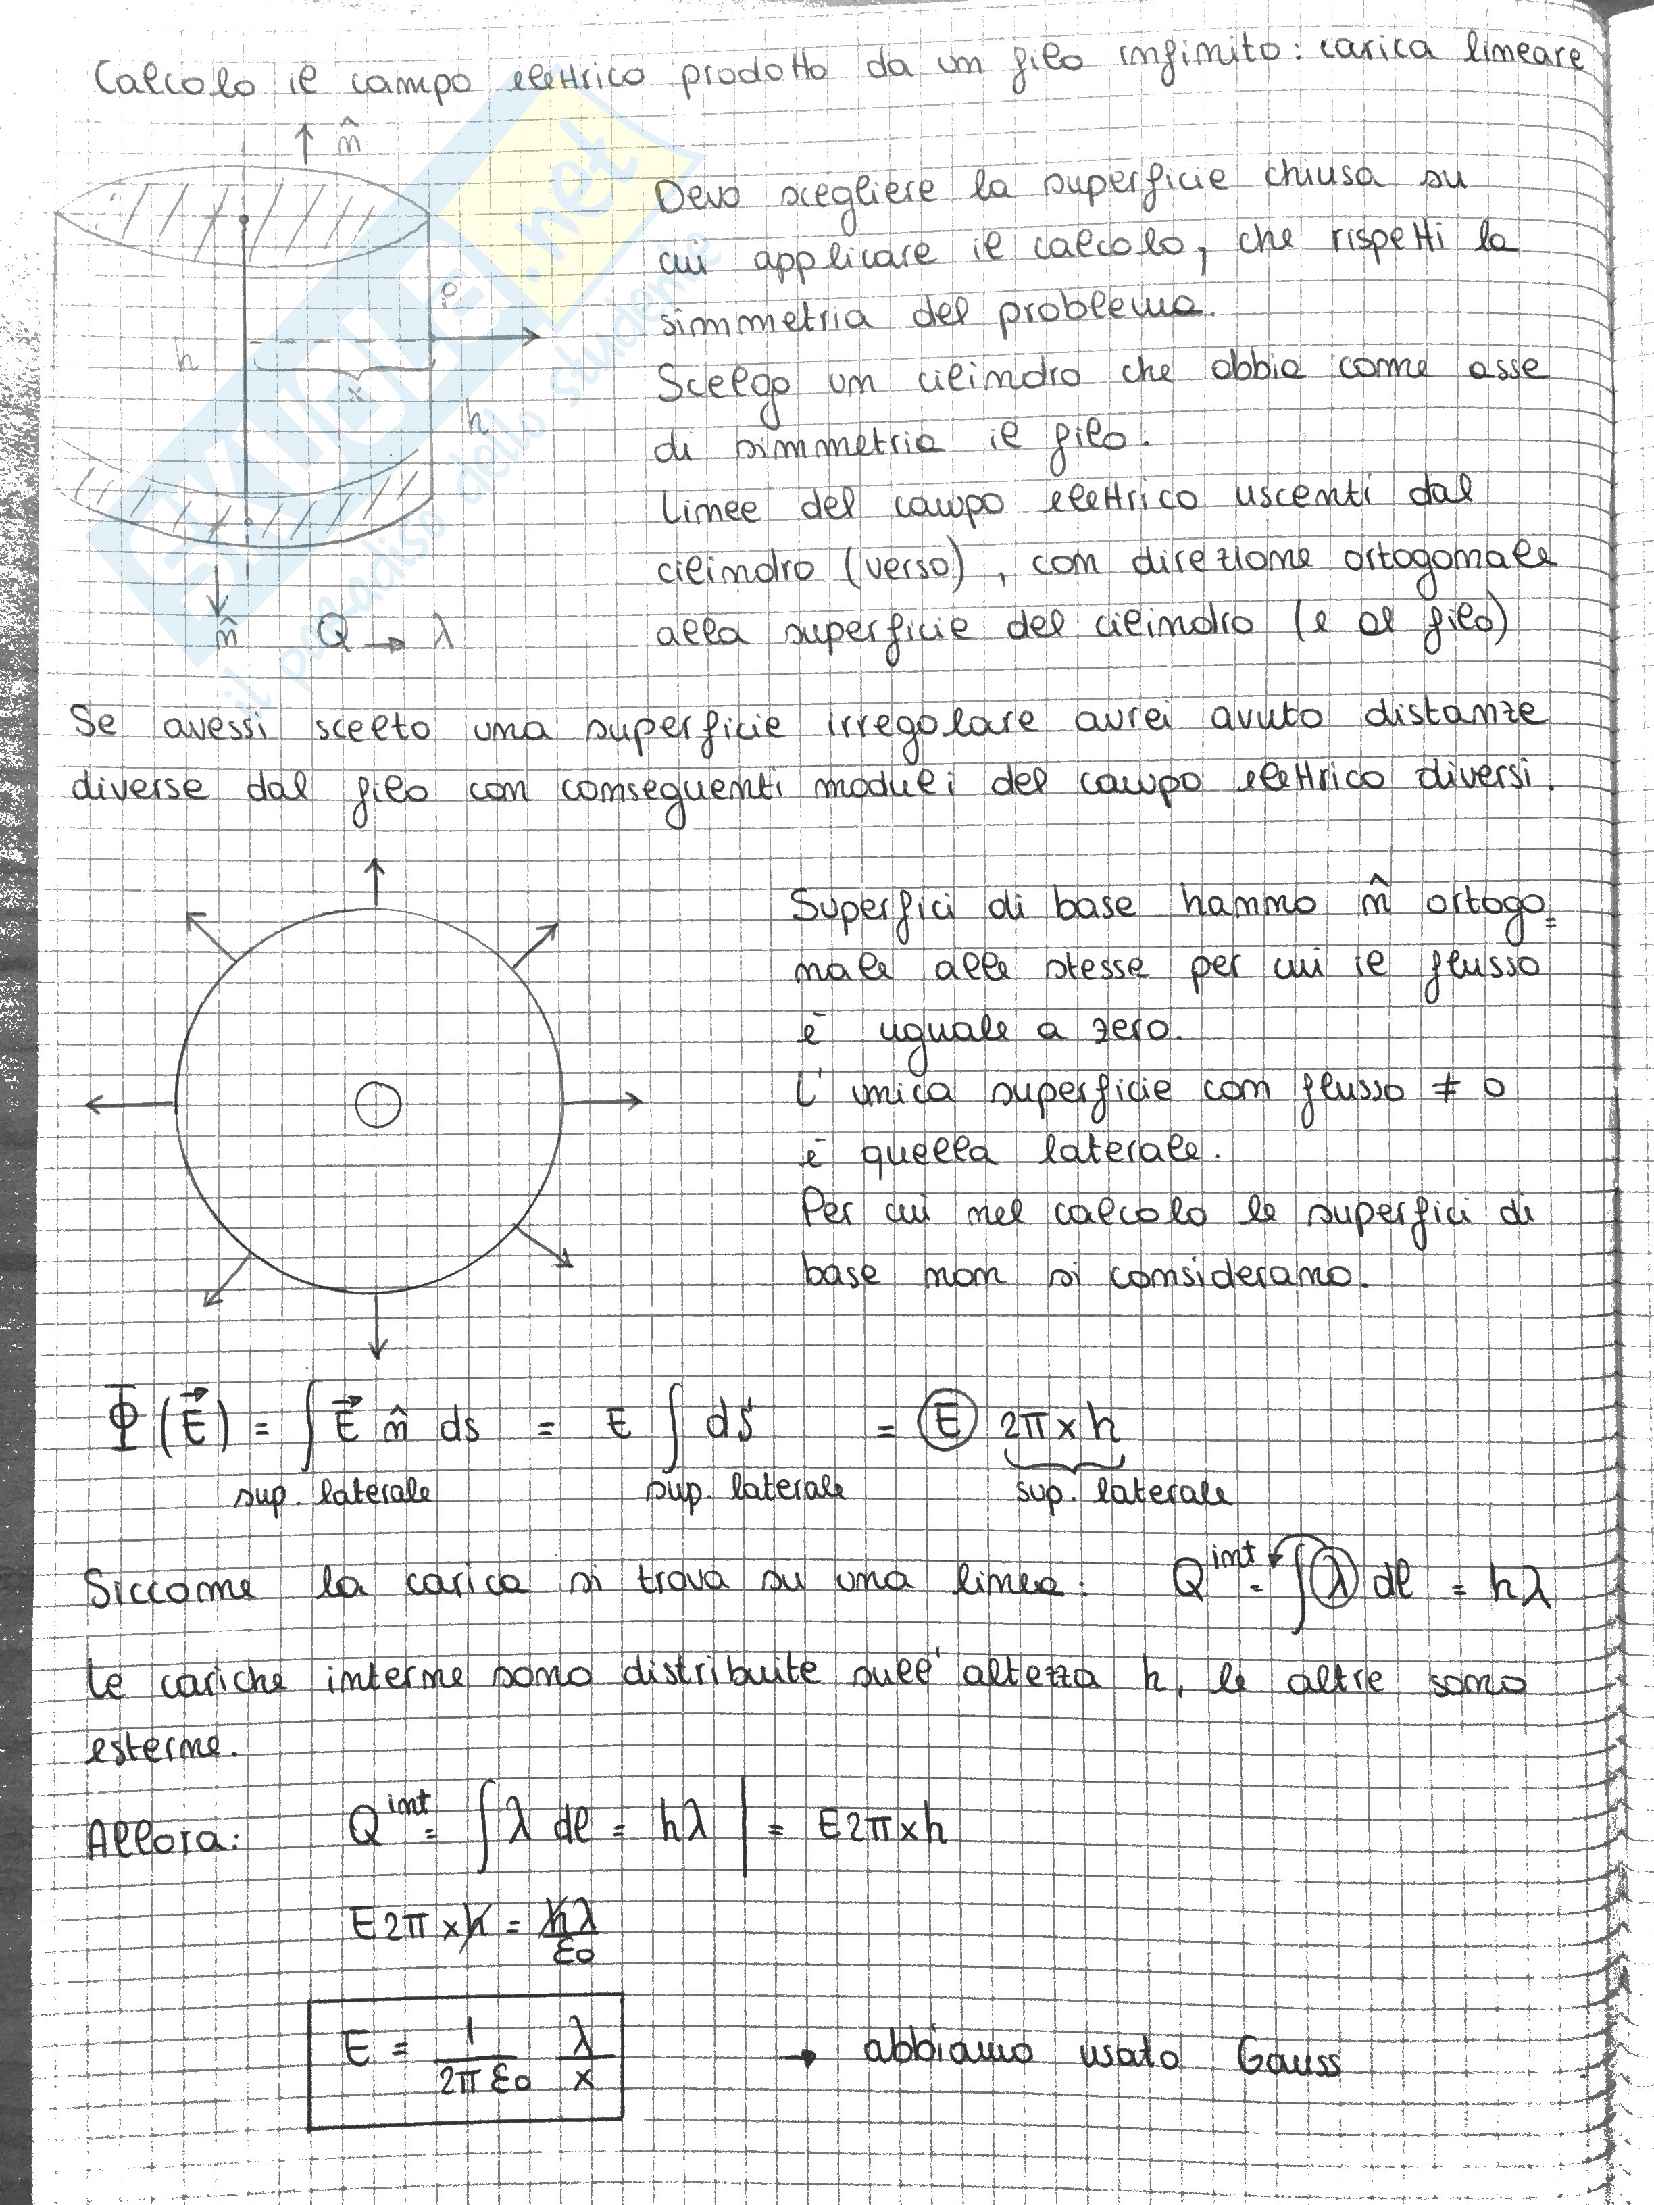 Calcolo il campo elettrico prodotto da un filo infinito: carica lineare
n̂
Devo scegliere la superficie chiusa su
cui applicare il calcolo, che rispetti la
simmetria del problema.
Scelgo un cilindro che abbia come asse
di simmetria il filo.
Linee del campo elettrico uscenti dal
cilindro (verso), con direzione ortogonale
alla superficie del cilindro (e al filo)
h
x
h
n̂ Q → λ
SKUOLA.net
il paradiso dello studente
Se avessi scelto una superficie irregolare avrei avuto distanze
diverse dal filo con conseguenti moduli del campo elettrico diversi.
Superfici di base hanno n̂ ortogo=
nale alle stesse per cui il flusso
è uguale a zero.
L'unica superficie con flusso ≠ 0
è quella laterale.
Per cui nel calcolo le superfici di
base non si considerano.
Φ(E⃗) = ∫ E⃗ n̂ ds = E ∫ ds = E 2π x h
sup. laterale sup. laterale sup. laterale
Siccome la carica si trova su una linea: Q^int = ∫ λ dl = hλ
Le cariche interne sono distribuite sull'altezza h, le altre sono
esterne.
Allora: Q^int = ∫ λ dl = hλ | = E2π x h
E2π x h = hλ/ε0
E = 1/2πε0 λ/x → abbiamo usato Gauss